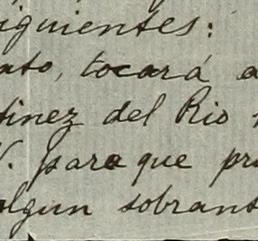 iguientes:
ato, tocará a
tinez del Rio
V. para que pr
algun sobrans